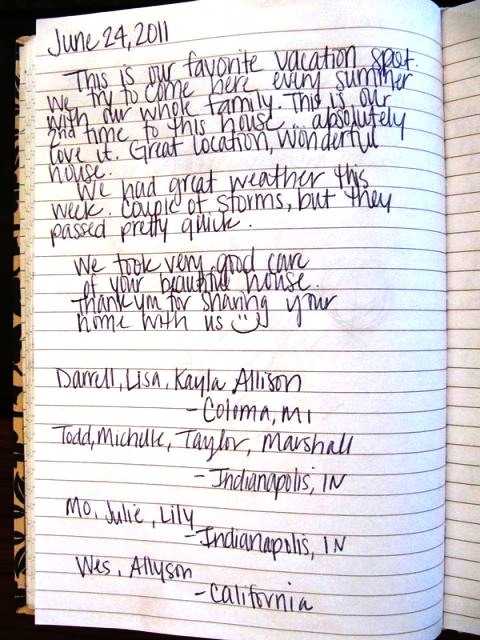 June 24, 2011
This is our favorite vacation spot.
We try to come here every summer
with our whole family. This is our
2nd time to this house... absolutely
love it. Great location, wonderful
house.
We had great weather this
week. Couple of storms, but they
passed pretty quick.
We took very good care
of your beautiful house.
Thank you for sharing your
home with us
Darrell, Lisa, Kayla Allison
- Coloma, MI
Todd, Michelle, Taylor, Marshall
- Indianapolis, IN
Mo, Julie, Lily
- Indianapolis, IN
Wes, Allyson
- California